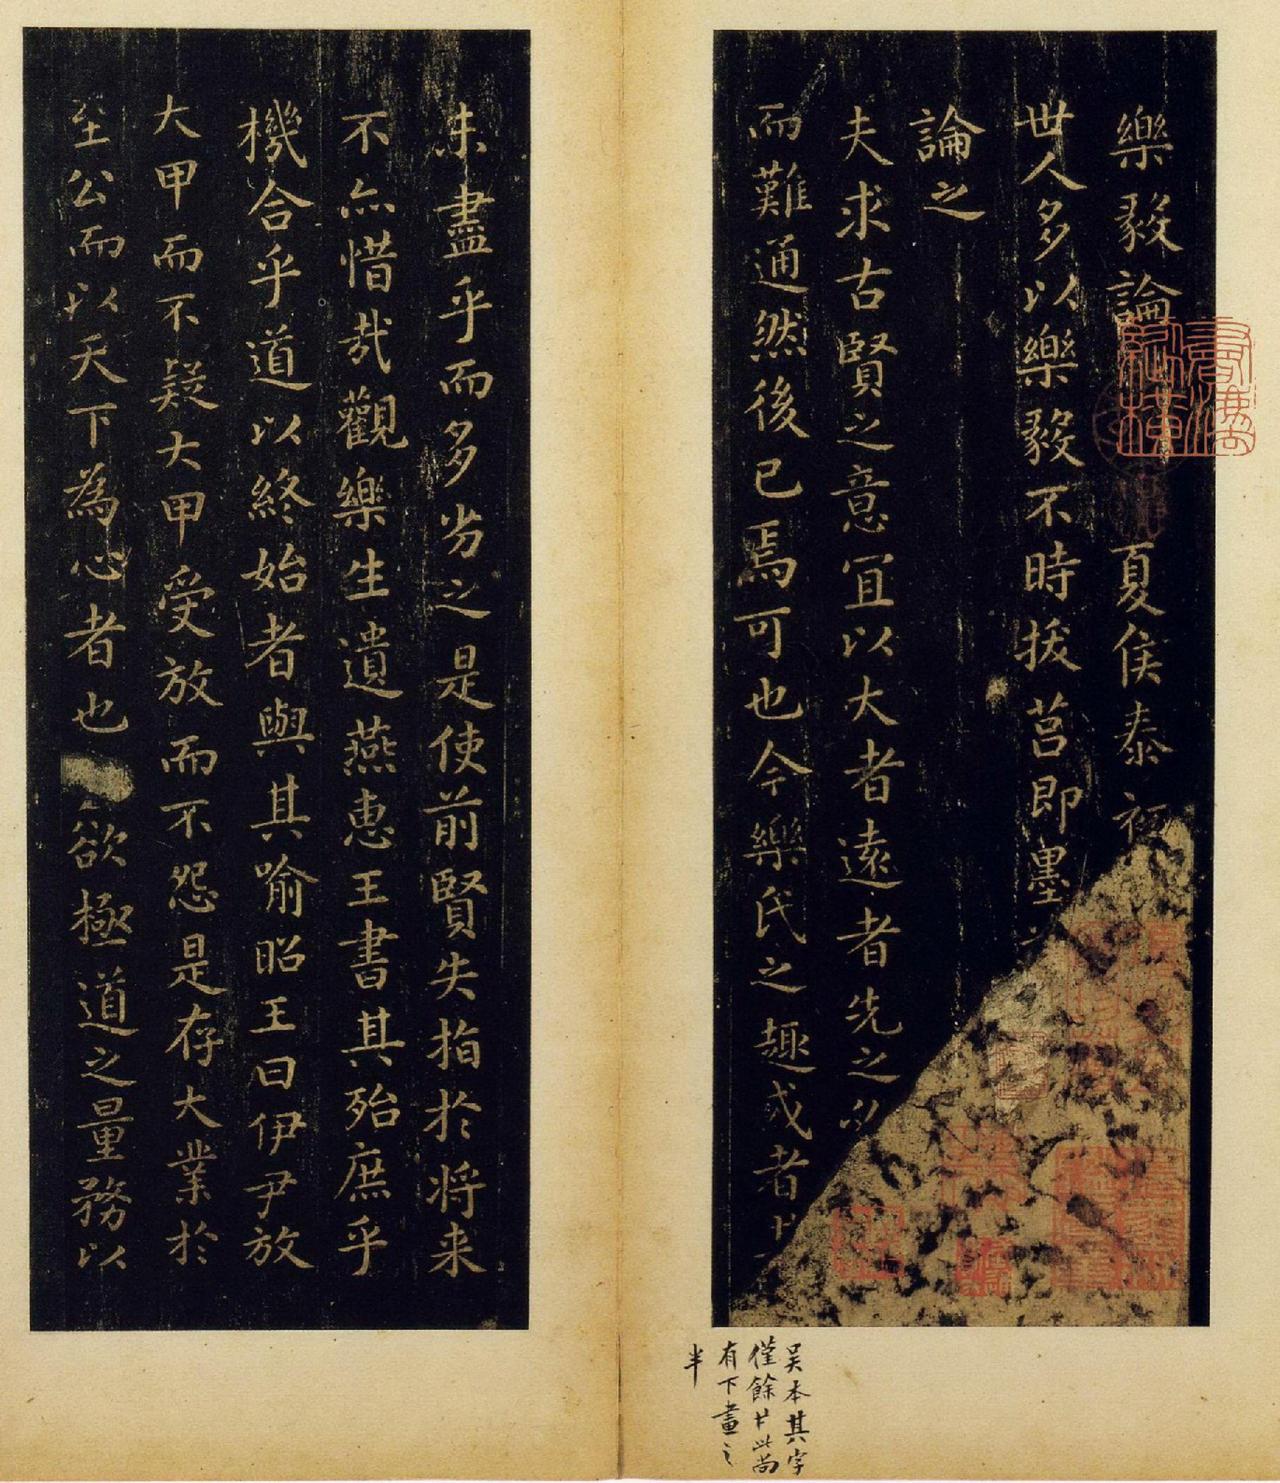 樂毅論 夏侯泰初
世人多以樂毅不時拔莒即墨
論之
夫求古賢之意宜以大者遠者先之必
而難通然後已焉可也今樂氏之趣或者其
未盡乎而多劣之是使前賢失指於将来
不亦惜哉觀樂生遺燕惠王書其殆庶乎
機合乎道以終始者與其喻昭王曰伊尹放
大甲而不疑大甲受放而不怨是存大業於
至公而以天下為心者也 欲極道之量務以
吴本其字
僅餘廿此尚
有下畫之
半